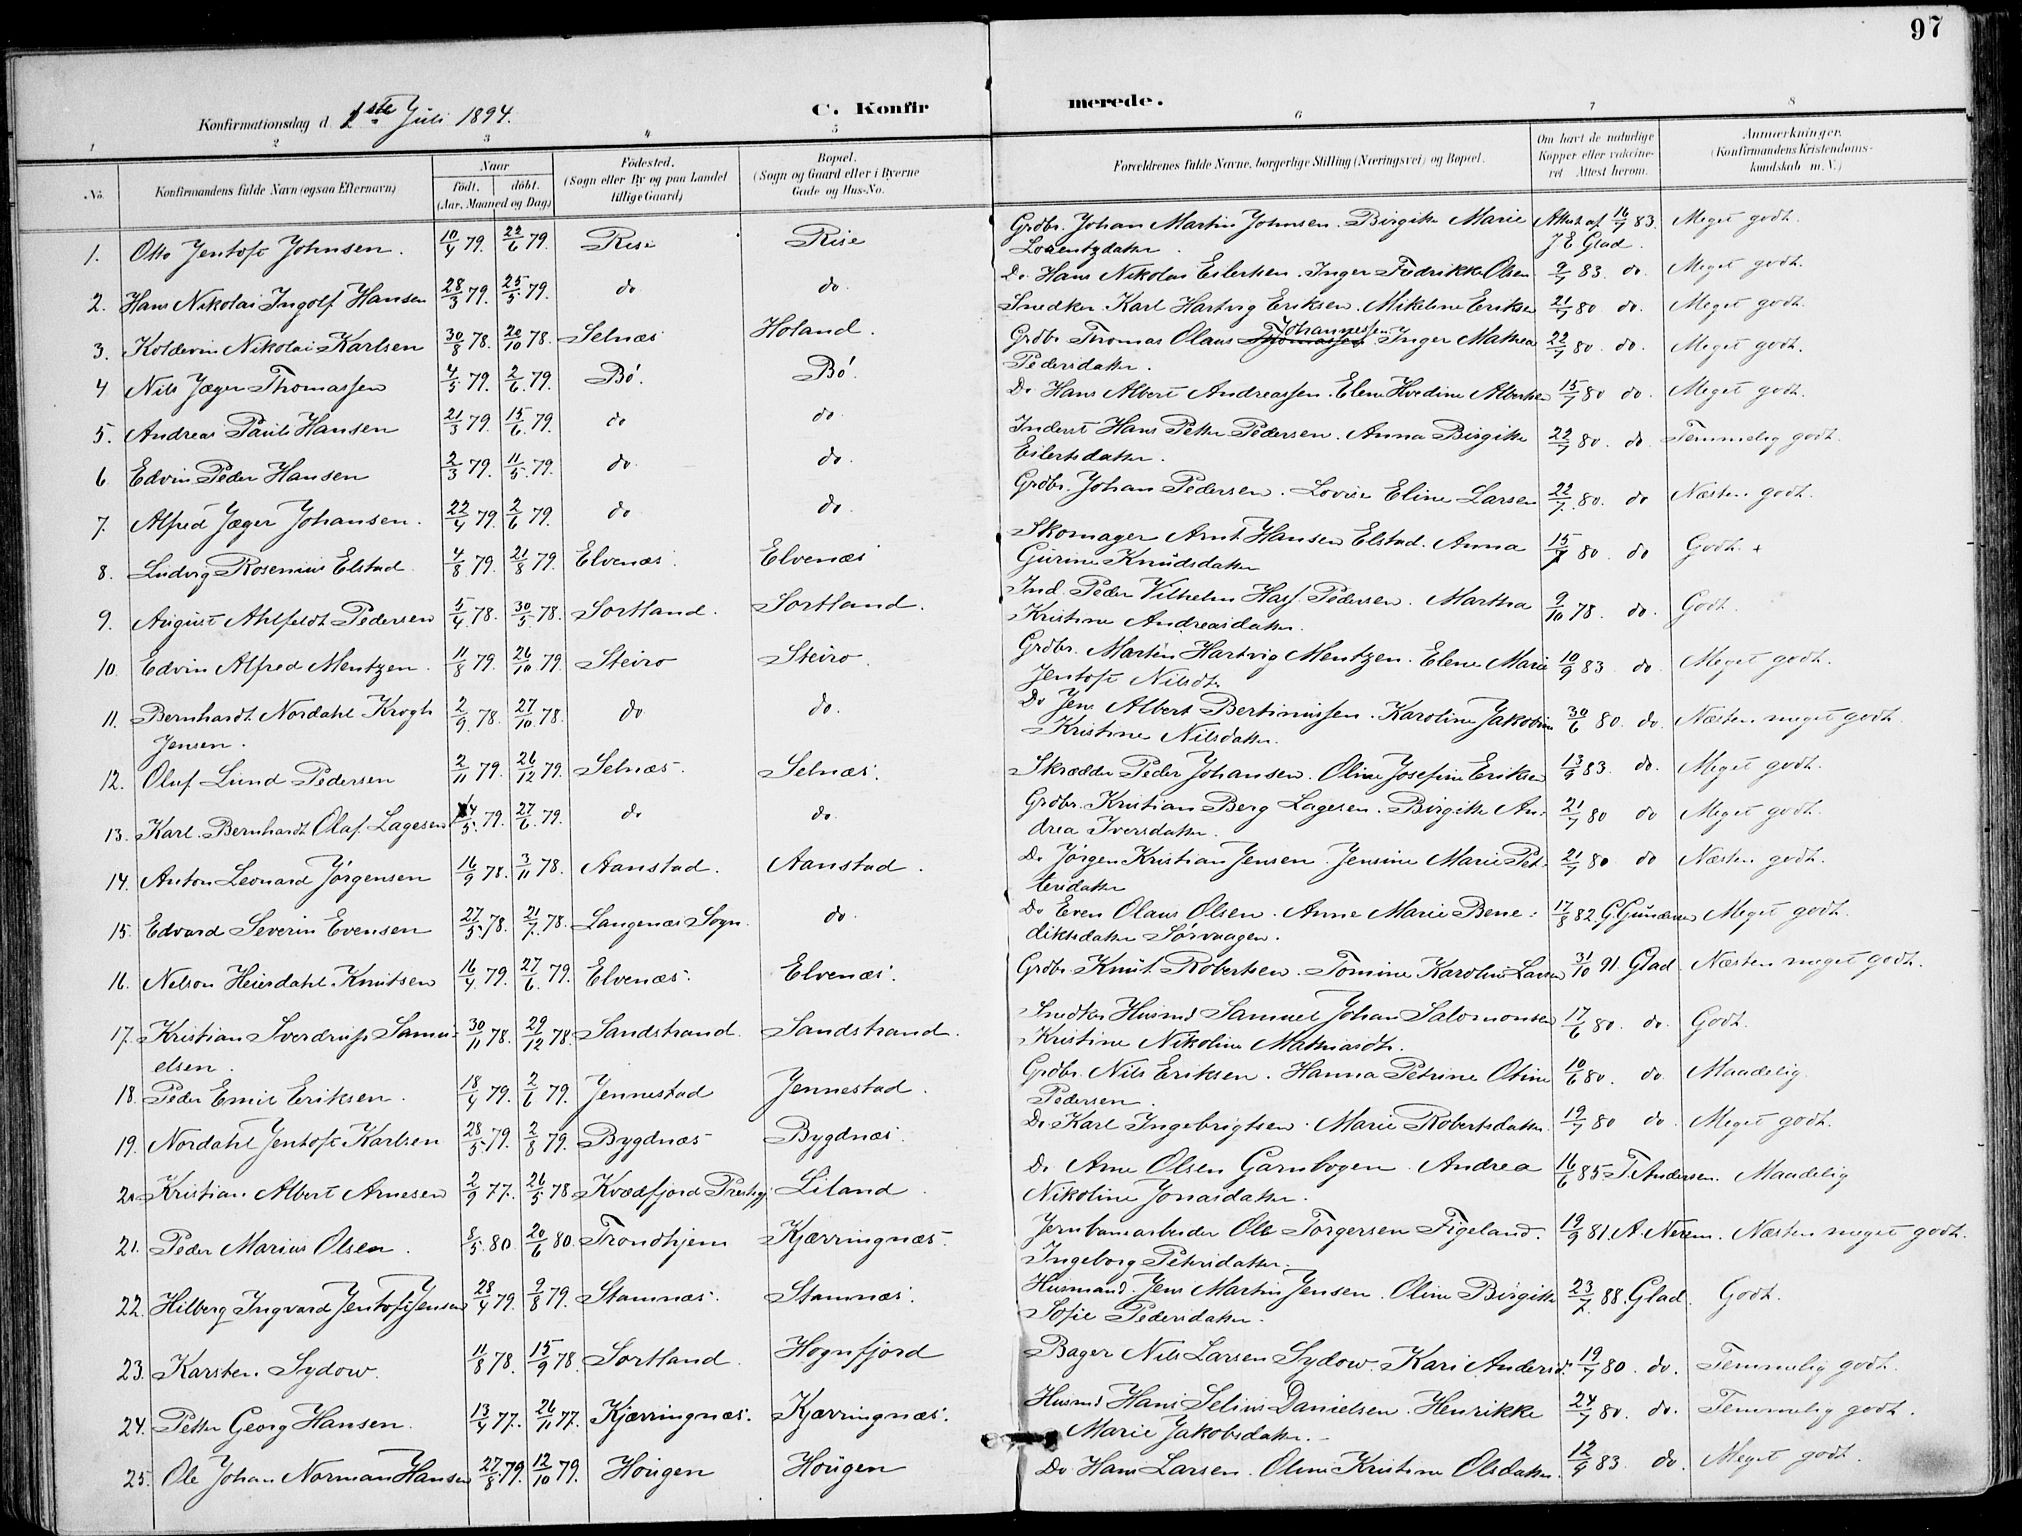 97
Konfirmationsdag d. 1ste Juli 1894. C. Konfirmerede.
1 2 3 4 5 6 7 8
No. Konfirmandens fulde Navn (ogsaa Efternavn) Naar født. døbt. (Aar, Maaned og Dag) Fødested. (Sogn eller By og paa Landet tillige Gaard) Bopæl. (Sogn og Gaard eller i Byerne Gade og Hus-No. Forældrenes fulde Navne, borgerlige Stilling (Næringsvei) og Bopæl. Om havt de naturlige Kopper eller vakcineret. Attest herom. Anmærkninger. (Konfirmandens Kristendomskundskab m. V.)
1. Otto Jentoft Johnsen. 10/4 79. 22/6 79. Rise Rise Grdbr. Johan Martin Johnsen. Birgitte Marie Attest af 16/7 83. Meget godt.
Lorentzdatter J E Glad.
2. Hans Nikolai Ingolf Hansen 28/3 79. 25/5 79. do do. Do Hans Nikolai Eilertsen. Inger Fredrikke Olsen 9/7 83. do. Meget godt.
3. Koldevin Nikolai Karlsen 30/8 78. 20/10 78. Selnæs Holand. Snedker Karl Hartvig Eriksen. Mikeline Eriksen 21/7 80 do. Meget godt.
4 Nils Jæger Thomassen 4/5 79. 2/6 79. Bø. Bø. Grdbr Thomas Olaus Johannessen. Inger Mathea 22/7 80. do. Meget godt.
Pedersdatter.
5. Andreas Pauli Hansen 21/3 79. 15/6 79. do do. Do Hans Albert Andreassen. Elene Hvedine Albertsen 15/7 80 do. Meget godt.
6 Edvin Peder Hansen 2/3 79. 11/5 79. do. do. Inderst Hans Petter Pedersen. Anna Birgitte 22/7 80. do Temmelig godt.
Eilertsdatter.
7. Alfred Jæger Johansen. 22/4 79. 2/6 79. do do. Grdbr. Johan Pedersen. Lovise Eline Larsen 22/7 80. do Næsten godt.
8. Ludvig Rosenius Elstad 4/8 79. 21/8 79. Elvenæs. Elvenæs Skomager Arnt Hansen Elstad. Anna 15/7 80 do Godt. +
Gurine Knudsdatter
9. August Ahlfeldt Pedersen 5/4 78. 30/5 78. Sortland. Sortland. Ind. Peder Vilhelm Hass Pedersen. Martha 9/10 78. do. Godt.
Kristine Andreasdatter.
10. Edvin Alfred Mentzen. 11/8 79. 26/10 79. Steiro Steiro. Grdbr. Martin Hartvig Mentzen. Elene Marie 10/9 83 do Meget godt.
Jentoft Nilsdt
11. Bernhardt Nordahl Krogh 2/9 78. 27/10 78. do do. Do Jens Albert Bertinussen. Karoline Jakobine 30/6 80 do. Næsten meget godt.
Jensen. Kristine Nilsdatter.
12. Oluf Lund Pedersen 2/11 79. 26/12 79. Selnæs. Selnæs. Skrædder Peder Johansen. Oline Josefine Eriksen 13/9 83. do. Meget godt.
13. Karl Bernhardt Olaf Lagesen 14/5 79. 27/6 79. do do. Grdbr. Kristian Berg Lagesen. Birgitte Andrea Iversdatter. 21/7 80 do Meget godt.
14. Anton Leonard Jørgensen 16/9 78. 3/11 78. Aanstad. Aanstad. Do Jørgen Kristian Jensen. Jensine Marie Pettersdatter 21/7 80 do Næsten godt.
15. Edvard Severin Evensen 27/5 78. 21/7 78. Langenæs Sogn. do. Do Even Olaus Olsen. Anne Marie Benediktsdatter Sørvaagen. 17/8 82. Meget godt.
16. Nelson Heierdahl Knutsen 16/4 79. 27/6 79. Elvenæs. Elvenæs. Grdbr Knut Robertsen. Tomine Karoline Larsen 31/10 91. Glad. Næsten meget godt.
17. Kristian Sverdrup Samuelsen. 30/11 78. 29/12 78. Sandstrand. Sandstrand. Snedker Husmd Samuel Johan Salomonsen 17/6 80. do. Godt.
Kristine Nikoline Mathiasdt.
18. Peder Emil Eriksen. 18/4 79. 2/6 79. Jennestad Jennestad. Grdbr. Nils Eriksen. Hanna Petrine Otine 10/6 80. do Maadelig.
Pedersen.
19. Nordahl Jentoft Karlsen 28/5 79. 2/8 79. Bygdnæs Bygdnæs. Do Karl Ingebrigtsen. Marie Robertsdatter. 19/7 80 do Meget godt.
20. Kristian Albert Arnesen 2/9 77. 26/5 78 Kvædfjord Prestgj. Liland. Do Arne Olsen Garnbogen. Andrea 16/6 85 T. Andersen. Maadelig
Nikoline Jonasdatter.
21. Peder Marius Olsen. 8/5 80. 20/6 80. Trondhjem Kjærringnæs. Jernbanearbeider Ole Torgersen Figeland. 19/9 81. A. Næsten meget godt.
Ingeborg Petersdatter.
22. Hilberg Ingvard Jentoft Jensen 28/4 79. 9/8 79. Stamnæs. Stamnæs. Husmand Jens Martin Jensen. Oline Birgitte 23/7 88. Glad. Godt.
Sofie Pedersdatter.
23. Karsten Sydow. 11/8 78. 15/9 78. Sortland. Hognfjord Bager Nils Larsen Sydow. Kari Andersd. 19/7 80. do. Temmelig godt.
24. Petter Georg Hansen. 13/4 77. 26/11 77. Kjærringnæs. Kjærringnæs. Husmd Hans Selius Danielsen. Henrikke 24/7 80. do. Temmelig godt.
Marie Jakobsdatter.
25. Ole Johan Norman Hansen 27/8 79. 12/10 79. Hougen Hougen Do Hans Larsen. Oline Kristine Olsdatter. 12/9 83. do. Meget godt.